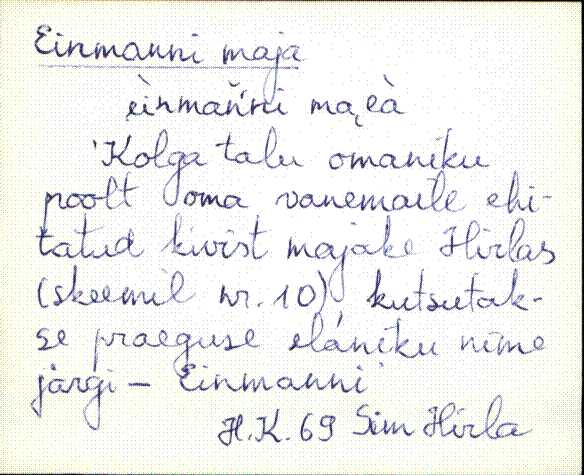 Einmanni maja
èinmañ̀ni ma̜eà
'Kolga talu omaniku
poolt oma vanemaile ehi-
tatud kivist majake Hirlas
(skeemil nr. 10) kutsutak-
se praeguse elániku nime
järgi – Einmanni'
H.K. 69 Sim Hirla